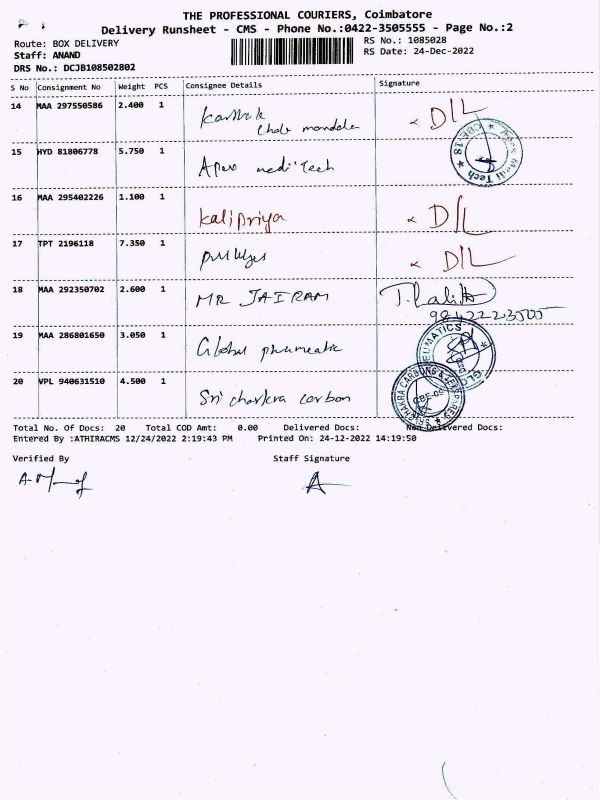 THE PROFESSIONAL COURIERS, Coimbatore
Delivery Runsheet - CMS - Phone No.:0422-3505555 - Page No.:2
Route: BOX DELIVERY
RS No.: 1085028
Staff: ANAND
RS Date: 24-Dec-2022
DRS No.: DCJB108502802
S No Consignment No Weight PCS Consignee Details Signature
14 MAA 297550586 2.400 1 Karthik D/L
15 HYD 81806778 5.750 1 Apex medi Tech
16 MAA 295402226 1.100 1 Kalipriya D/L
17 TPT 2196118 7.350 1 D/L
18 MAA 292350702 2.600 1 MR JAIRAM T. Lalith
19 MAA 286801650 3.050 1 Global pneumatic
20 VPL 940631510 4.500 1 Sri chakra carbon
Total No. Of Docs: 20 Total COD Amt: 0.00 Delivered Docs: Non Delivered Docs:
Entered By :ATHIRACMS 12/24/2022 2:19:43 PM Printed On: 24-12-2022 14:19:50
Verified By Staff Signature